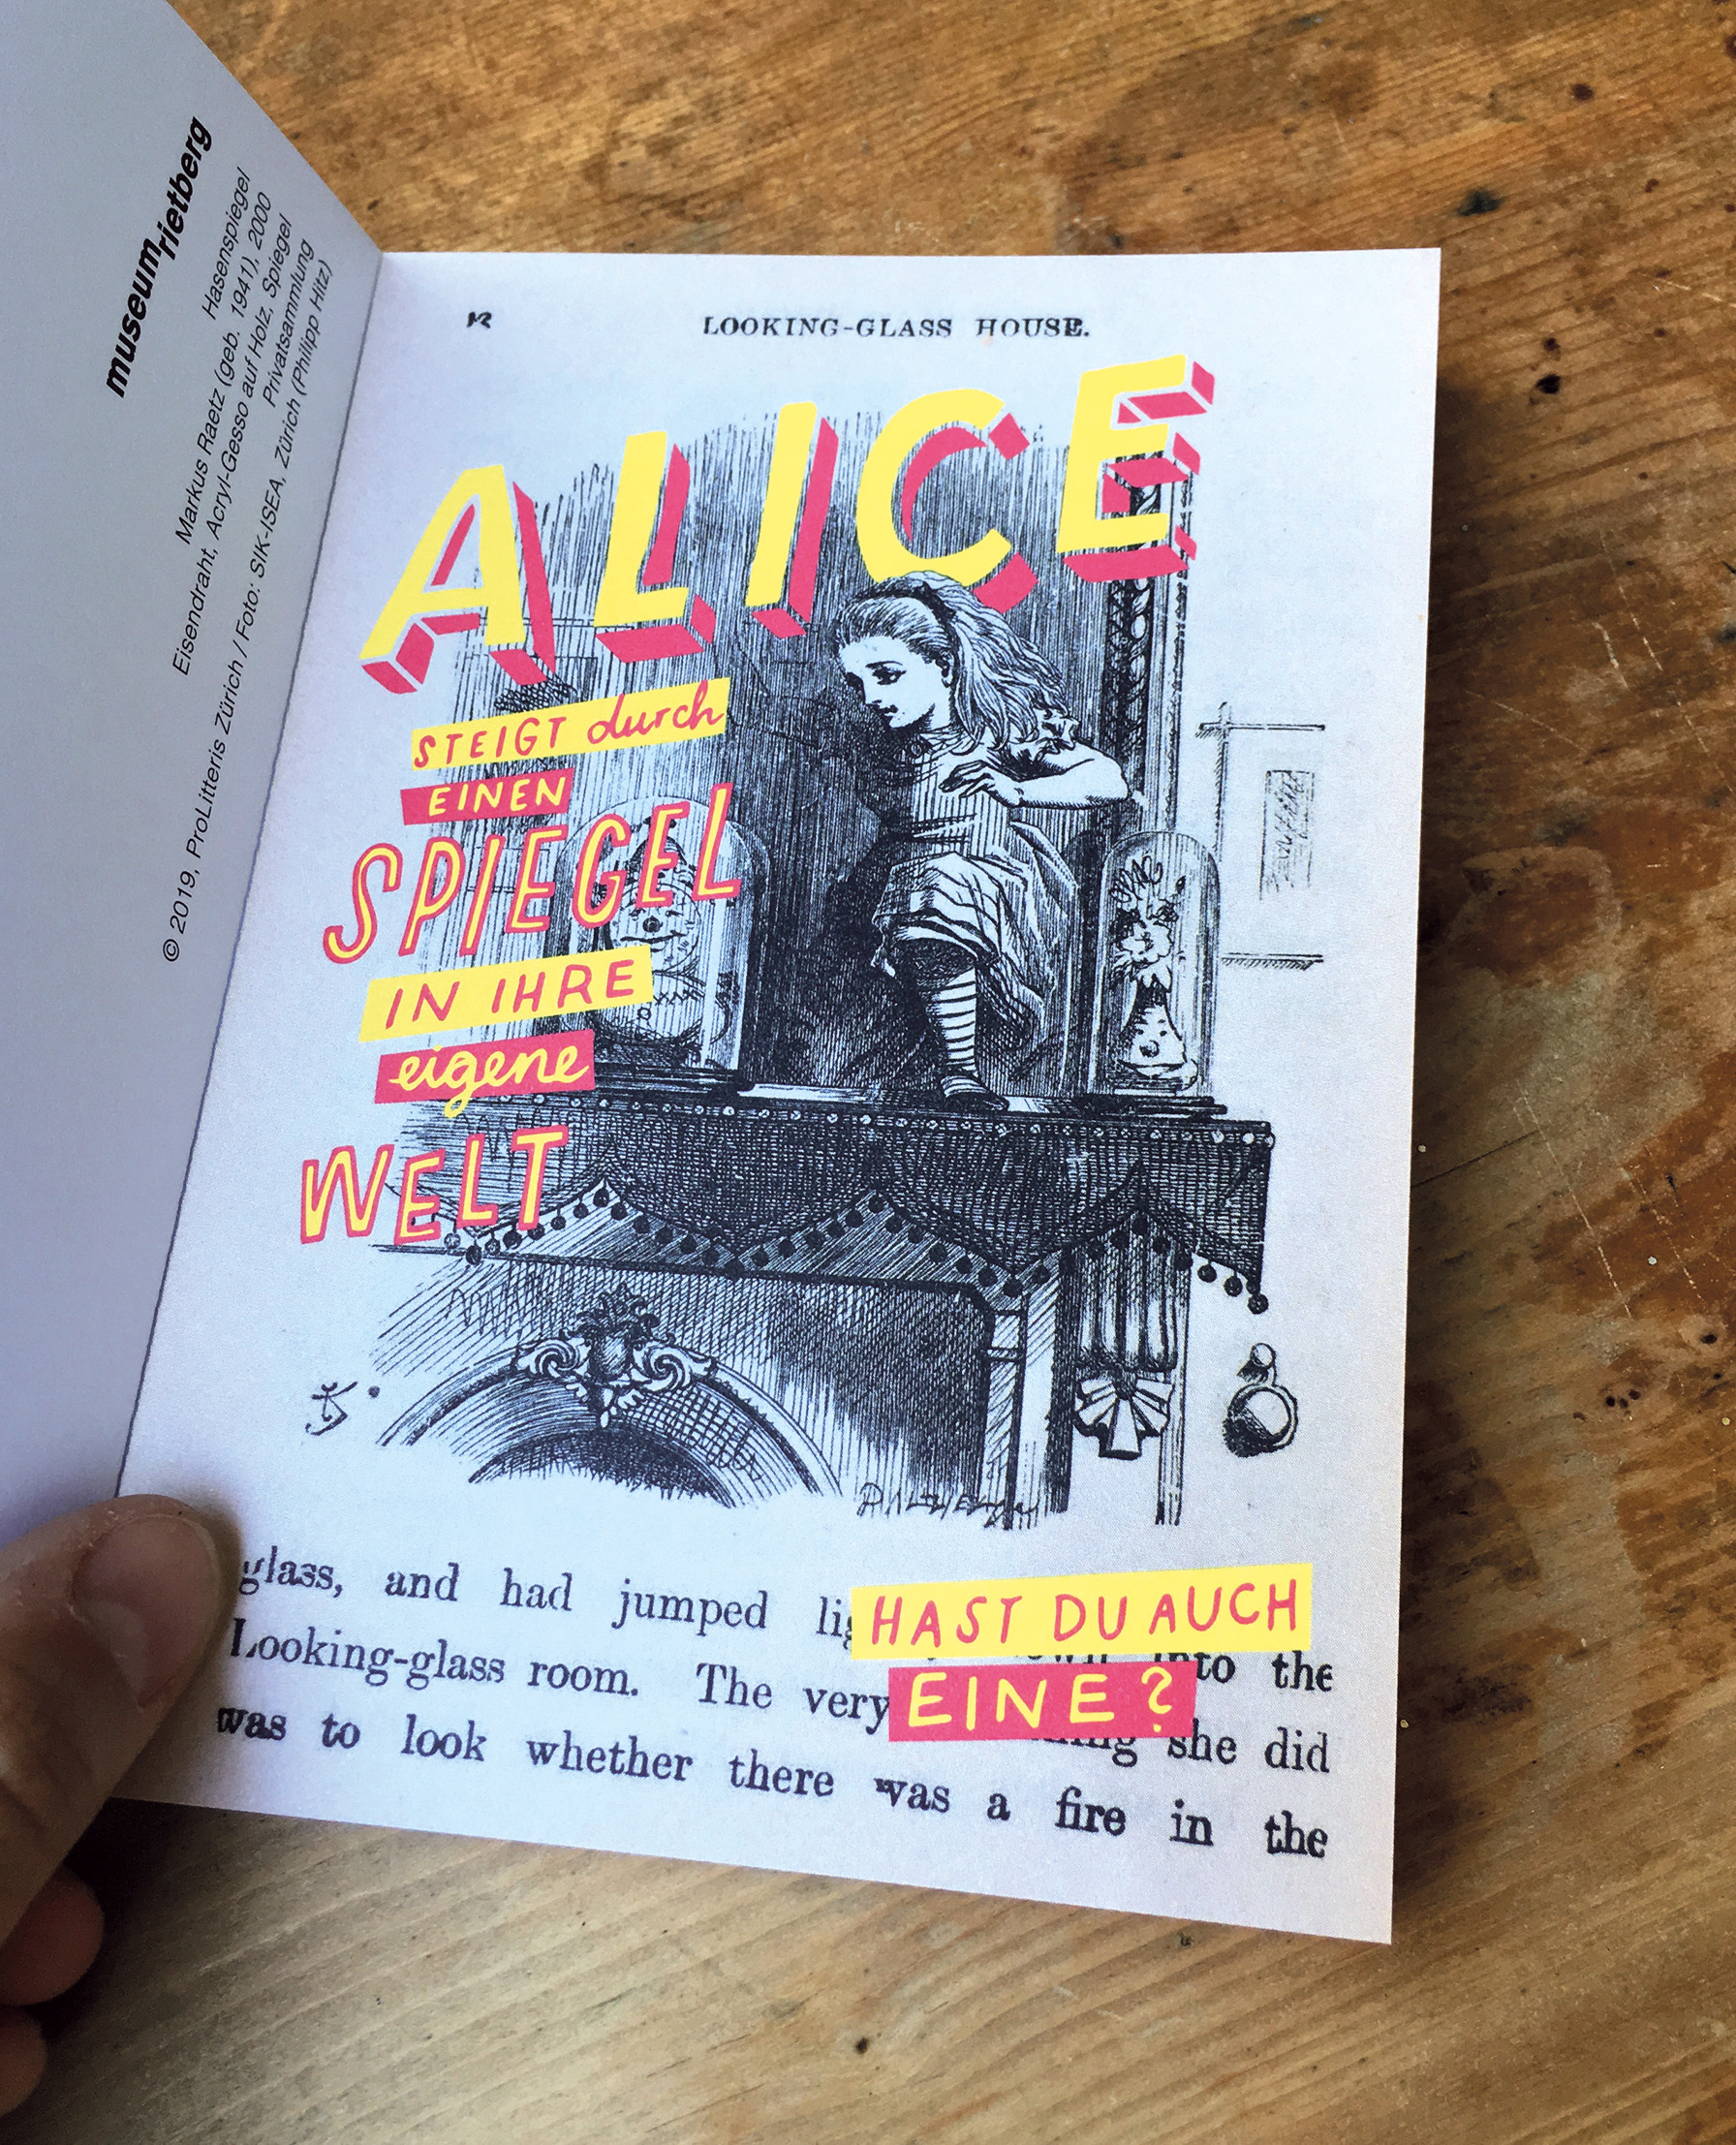 museumrietberg
Hasenspiegel
Markus Raetz (geb. 1941), 2000
Eisendraht, Acryl-Gesso auf Holz, Spiegel
Privatsammlung
© 2019, ProLitteris Zürich / Foto: SIK-ISEA, Zürich (Philipp Hitz)
12 LOOKING-GLASS HOUSE.
ALICE
STEIGT durch
EINEN
SPIEGEL
IN IHRE
eigene
WELT
glass, and had jumped into the
HAST DU AUCH
Looking-glass room. The very she did
EINE?
was to look whether there was a fire in the